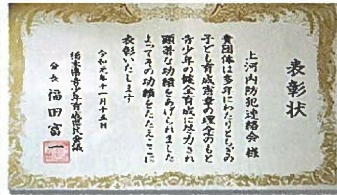 表彰状
上河内防犯連絡会 様
貴団体は多年にわたりとちぎの
子ども育成憲章の理念のもと
青少年の健全育成に尽力され
顕著な功績をあげられました
よってその功績をたたえここに
表彰いたします
令和元年十一月十五日
栃木県青少年育成県民会議
会長 福田富一